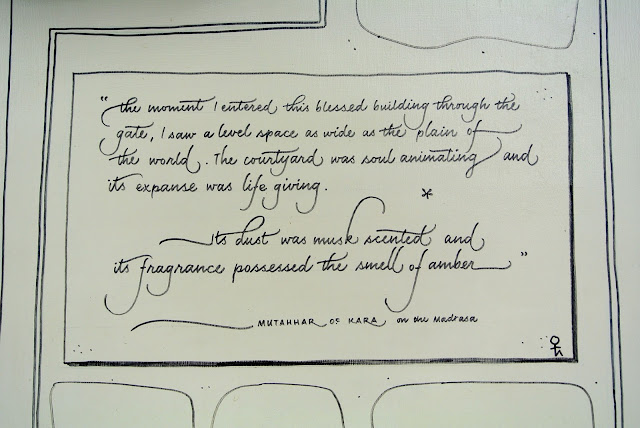 “the moment I entered this blessed building through the
gate, I saw a level space as wide as the plain of
the world. The courtyard was soul animating and
its expanse was life giving.
Its dust was musk scented and
its fragrance possessed the smell of amber”
MUTAHHAR OF KARA on the Madrasa